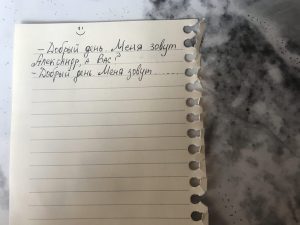 - Добрый день. Меня зовут
Александр, а Вас?
- Добрый день. Меня зовут..........